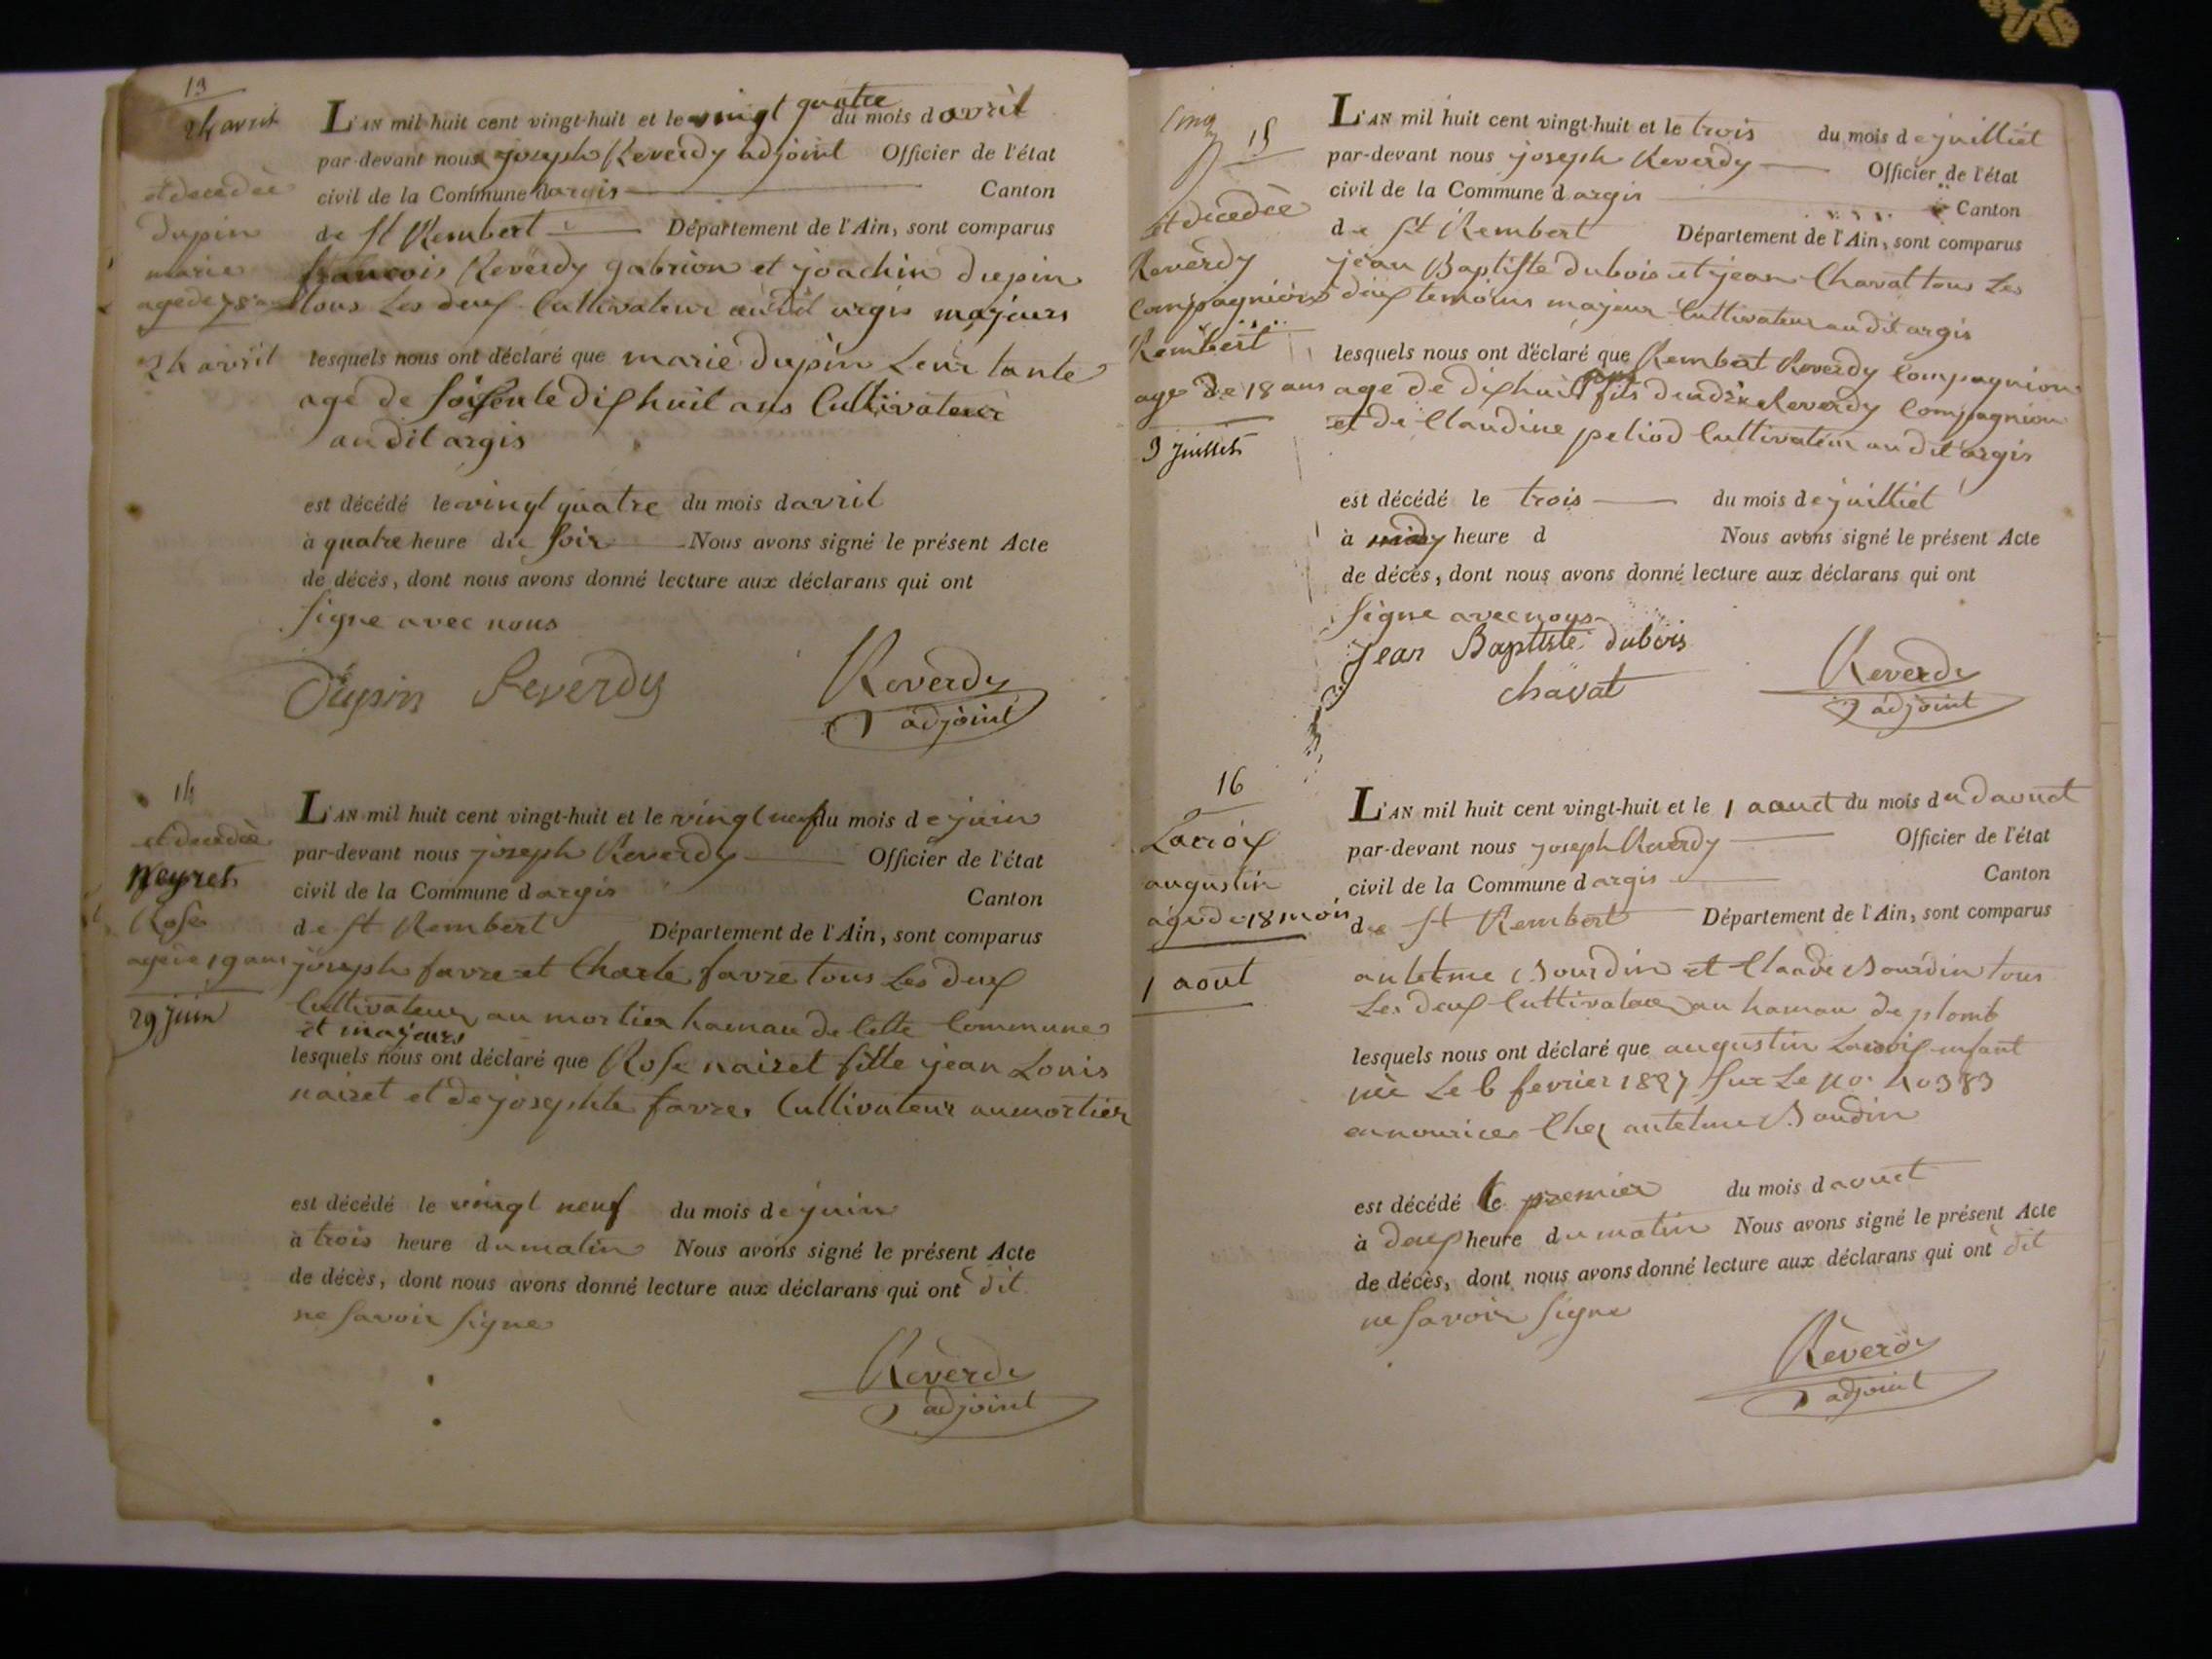 13
24 avril
et decedèe
Dupin
marie
agede 78 ans
24 avril
L'AN mil huit cent vingt-huit et le vingt quatre du mois d avril
par-devant nous joseph Reverdy adjoint Officier de l'état
civil de la Commune dargis Canton
de St Rembert Département de l'Ain, sont comparus
francois Reverdy gabrion et joachin dupin
tous Les deux Cultivateur audit argis majeurs
lesquels nous ont déclaré que marie Dupin Leur tante
age de soissente dix huit ans Cultivateur
au dit argis
est décédé le vingt quatre du mois davril
à quatre heure du soir Nous avons signé le présent Acte
de décès, dont nous avons donné lecture aux déclarans qui ont
signe avec nous
Dupin Reverdy Reverdy
adjoint
14
et decedèe
Neyret
Rose
agee de 19 ans
29 juin
L'AN mil huit cent vingt-huit et le vingt neuf du mois de juin
par-devant nous joseph Reverdy Officier de l'état
civil de la Commune dargis Canton
de St Rembert Département de l'Ain, sont comparus
joseph favre et Charle favre tous Les deux
Cultivateur au mortier hamau de Cette Commune
et majeurs
lesquels nous ont déclaré que Rose nairet fille jean Louis
nairet et de josephte favre Cultivateur au mortier
est décédé le vingt neuf du mois de juin
à trois heure du matin Nous avons signé le présent Acte
de décès, dont nous avons donné lecture aux déclarans qui ont dit
ne savoir signe
Reverdy
adjoint
Cinq
15
et decedèe
Reverdy
Compagnion
Rembert
age de 18 ans
3 juillet
L'AN mil huit cent vingt-huit et le trois du mois de juilliet
par-devant nous joseph Reverdy Officier de l'état
civil de la Commune dargis Canton
de St Rembert Département de l'Ain, sont comparus
jean Baptiste dubois et jean Chavat tous Les
deux temoins majeur Cultivateur au dit argis
lesquels nous ont déclaré que Rembert Reverdy Compagnion
age de dixhuit ans fils dandré Reverdy Compagnion
et de Claudine peliod Cultivateur au dit argis
est décédé le trois du mois de juilliet
à midy heure d Nous avons signé le présent Acte
de décès, dont nous avons donné lecture aux déclarans qui ont
signe avec nous
Jean Baptiste dubois
chavat Reverdy
adjoint
16
Lacroix
augustin
agé de 18 mois
1 aout
L'AN mil huit cent vingt-huit et le 1 aouct du mois du daouct
par-devant nous joseph Reverdy Officier de l'état
civil de la Commune dargis Canton
de St Rembert Département de l'Ain, sont comparus
antelme Bourdin et Claude Bourdin tous
Les deux Cultivateur au hamau de plomb
lesquels nous ont déclaré que augustin Lacroix enfant
née Le 6 fevrier 1827 sur Le no. 40383
en nourices Chez antelme Boudin
est décédé le premier du mois daouct
à deux heure du matin Nous avons signé le présent Acte
de décès, dont nous avons donné lecture aux déclarans qui ont dit
ne savoir signe
Reverdy
adjoint